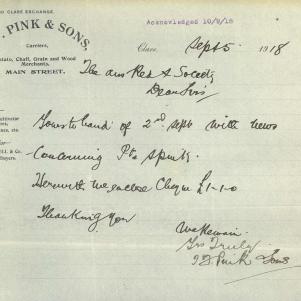 CLARE EXCHANGE.
Acknowledged 10/9/18
. PINK & SONS,
Carriers,
Chaff, Grain and Wood
Merchants,
MAIN STREET.
Clare, Sept 5 1918
The Aus Red X Society
Dear Sirs
Yours to hand of 2nd Sept with news
Concerning Pte Spinks.
Herewith we enclose Cheque £1-1-0
Thanking You
We Remain
Yrs Truly
Pink & Sons